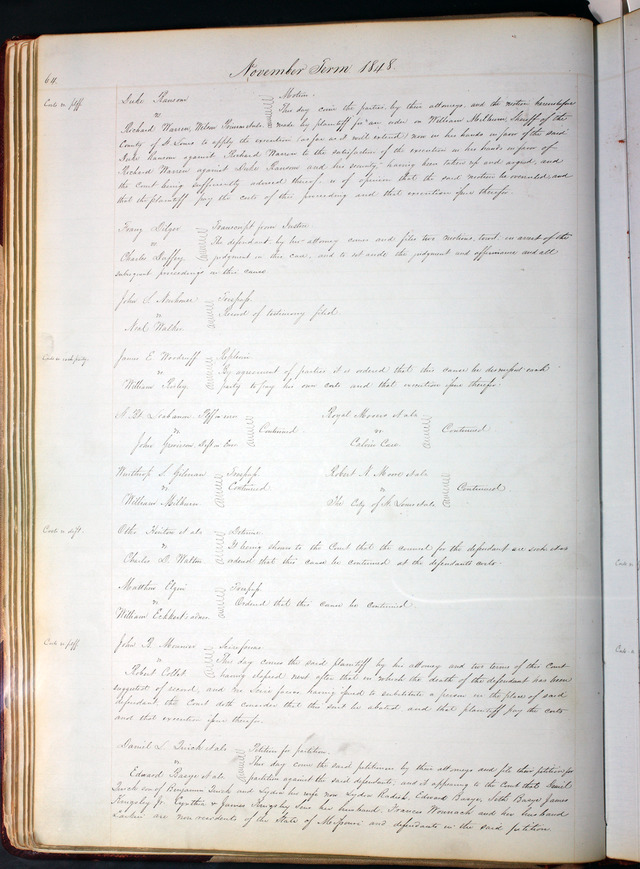 64
November Term 1848.
Costs vs plff
Duke Ransom
vs
Richard Warren, Wilson Primm et als
Motion.
This day come the parties by their attorneys, and the motion heretofore
made by plaintiff for an order on William Milburn, Sheriff of the
County of St. Louis to apply the execution so far as it will extend now in his hands in favor of the said
Duke Ransom against Richard Warren to the satisfaction of the execution in his hands in favor of
Richard Warren against Duke Ransom and his security having been taken up and argued, and
the Court being sufficiently advised thereof is of opinion that the said motion be overruled, and
that the plaintiff pay the costs of this proceeding and that execution issue therefor.
Franz Dilger
vs
Charles Guffey
Transcript from Justice.
The defendant by his attorney comes and files two motions, to wit: in arrest of the
judgment in this case, and to set aside the judgment and affirmance and all
subsequent proceedings in this cause
John S.
vs
Neal Walker
Trespass.
Record of testimony filed.
Costs vs each party
James E. Woodruff
vs
William
Replevin
By agreement of parties it is ordered that this cause be dismissed each
party to pay his own costs and that execution issue therefor.
Plff in err
vs
John Grierson, Deft in Error
Continued
Royal Moores et als
vs
Calvin Case
Continued
Winthrop S. Gilman
vs
William Milburn
Trespass
Continued
Robert N. Moore et als
vs
The City of St. Louis et als
Continued
Costs vs deft
Otho Hinton et als
vs
Charles D. Walton
Detinue.
It being shown to the Court that the counsel for the defendant are sick it is
ordered that this cause be continued at the defendants costs.
Matthew Elgin
vs
William Eckhert's admr
Trespass
Ordered that this cause be continued.
Costs vs plff
John B. Meunier
vs
Robert Collet
Scire facias
This day comes the said plaintiff by his attorney and two terms of this Court
having elapsed next after that in which the death of the defendant has been
suggested of record, and no Scire facias having issued to substitute a person in the place of said
defendant the Court doth consider that this suit be abated and that plaintiff pay the costs
and that execution issue therefor.
Daniel L. Quick et als
vs
Edward Basye et als
Petition for partition.
This day come the said petitioners by their attorneys and file their petition for
partition against the said defendants, and it appearing to the Court that
Quick son of Benjamin Quick and Lydia his wife now Lydia Radish, Edward Basye, Seth Basye James
Kingsley Jr. Cynthia & James Kingsley Senr her husband, Frances Womach and her husband
are non residents of the State of Missouri and defendants in the said petition.
Costs vs
Costs